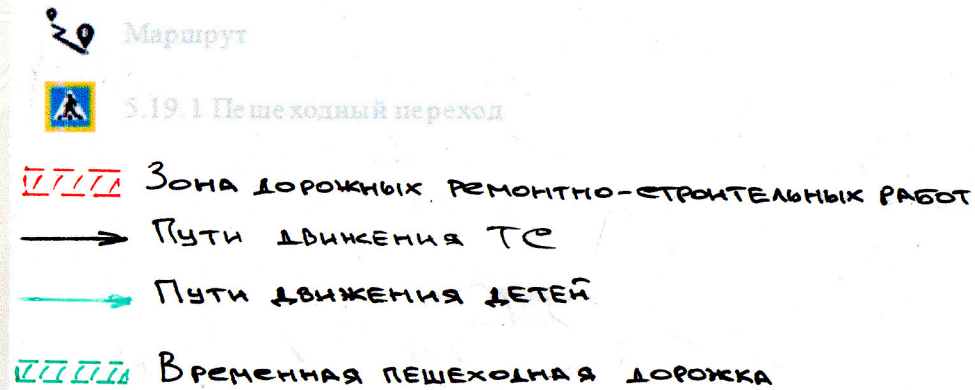 Маршрут
5.19.1 Пешеходный переход
Зона дорожных ремонтно-строительных работ
Пути движения ТС
Пути движения детей
Временная пешеходная дорожка